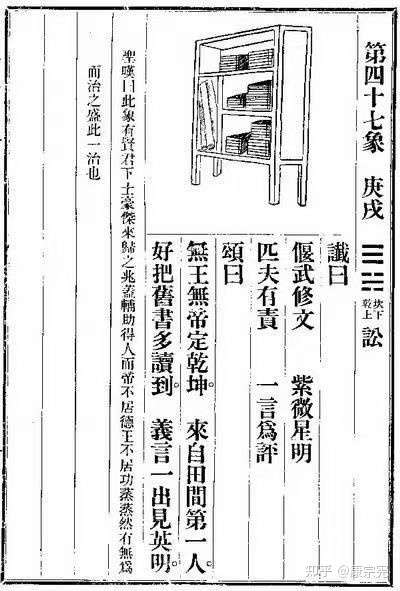 第四十七象 庚戌 坎下乾上 訟
讖曰
偃武修文 紫微星明
匹夫有責 一言爲評
頌曰
無王無帝定乾坤 來自田間第一人。
好把舊書多讀到。 義言一出見英明。
聖嘆曰此象有賢君下士豪傑來歸之兆蓋輔助得人而帝不居德王不居功蒸蒸然有無爲
而治之盛此一治也
知乎 @康宗憲